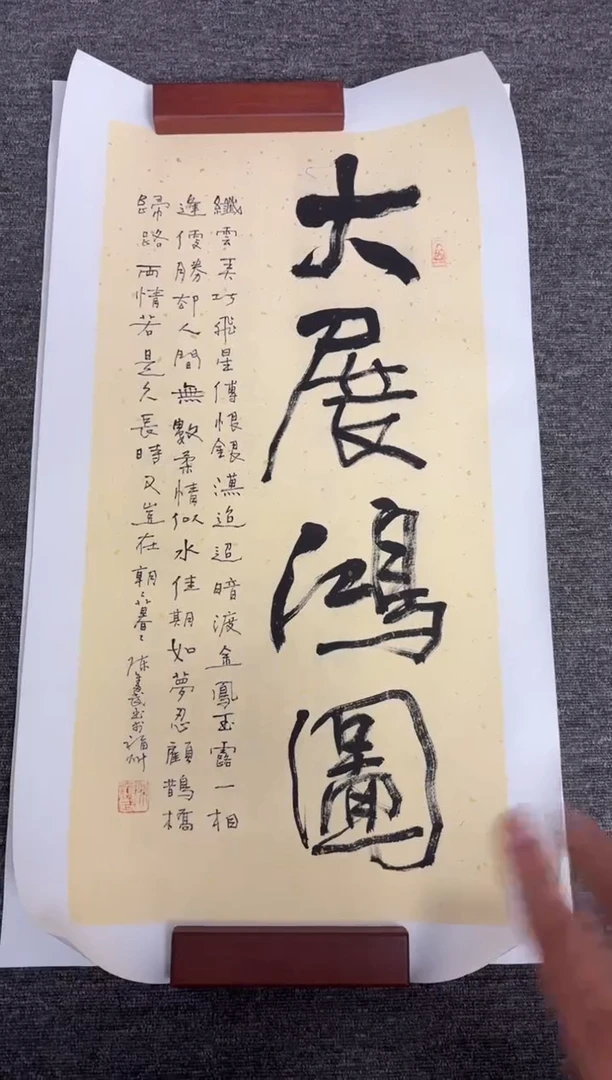 大展鴻圖
纖雲弄巧飛星傳恨銀漢迢迢暗渡金鳳玉露一相
逢便勝却人間無數柔情似水佳期如夢忍顧鵲橋
歸路两情若是久長時又豈在朝〻暮〻 陈